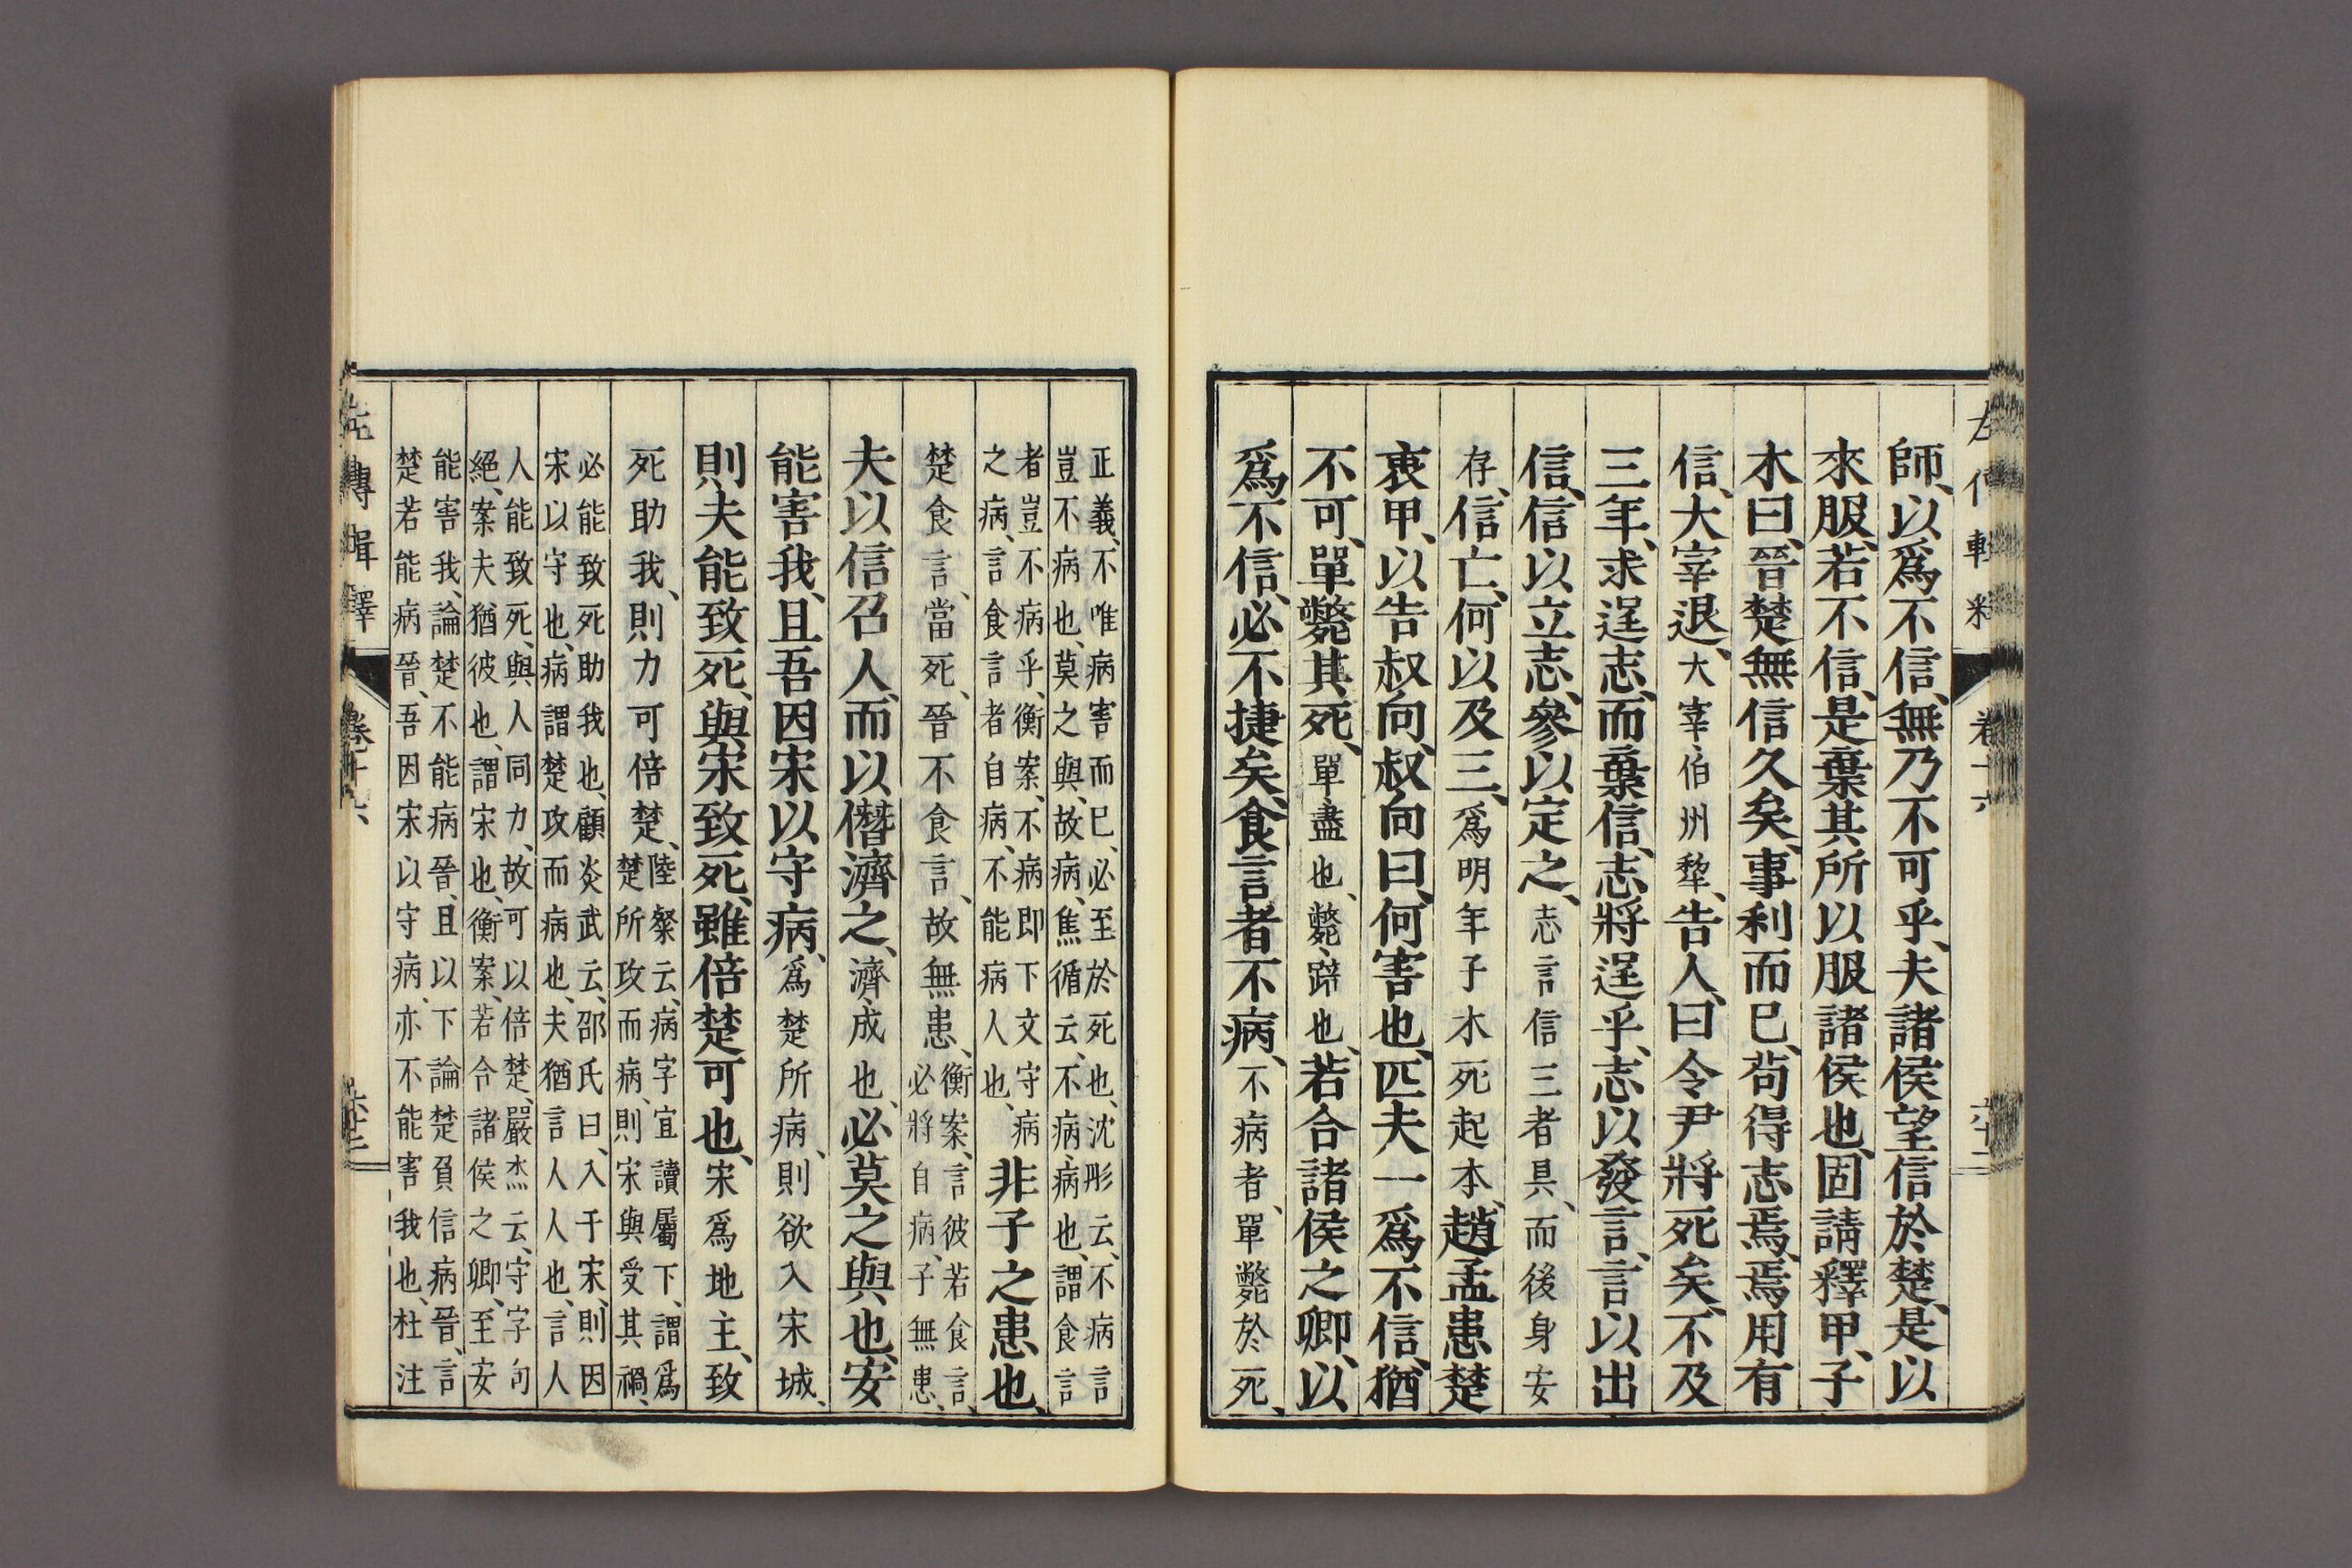 師、以爲不信、無乃不可乎、夫諸侯望信於楚、是以
來服、若不信、是棄其所以服諸侯也、固請釋甲、子
木曰、晉楚無信久矣、事利而已、苟得志焉、焉用有
信、大宰退、大宰、伯州犂、告人曰、令尹將死矣、不及
三年、求逞志、而棄信、志將逞乎、志以發言、言以出
信、信以立志、參以定之、志言信三者具、而後身安
存、信亡、何以及三、爲明年子木死起本、趙孟患楚
衷甲、以告叔向、叔向曰、何害也、匹夫一爲不信、猶
不可、單斃其死、單、盡也、斃、踣也、若合諸侯之卿、以
爲不信、必不捷矣、食言者不病、不病者、單斃於死、
正義、不唯病害而已、必至於死也、沈彤云、不病言
豈不病也、莫之與、故病、焦循云、不病、病也、謂食言
者豈不病乎、衡案、不病、即下文守病
之病、言食言者自病、不能病人也、
非子之患也、
楚食言、當死、晉不食言、故無患、
衡案、言彼若食言、
必將自病、子無患、
夫以信召人、而以僭濟之、濟、成也、必莫之與也、安
能害我、且吾因宋以守病、爲楚所病、則欲入宋城、
則夫能致死、與宋致死、雖倍楚可也、宋爲地主、致
死助我、則力可倍楚、
陸粲云、病字宜讀屬下、謂爲
楚所攻而病、則宋與受其禍、
必能致死助我也、顧炎武云、邵氏曰、入于宋、則因
宋以守也、病謂楚攻而病也、夫猶言人人也、言人
人能致死、與人同力、故可以倍楚、嚴杰云、守字句
絕、案夫猶彼也、謂宋也、衡案、若令諸侯之卿、至安
能害我、論楚不能病晉、且以下論楚負信病晉、言
楚若能病晉、吾因宋以守病、亦不能害我也、杜注
左傳輯釋 卷十六